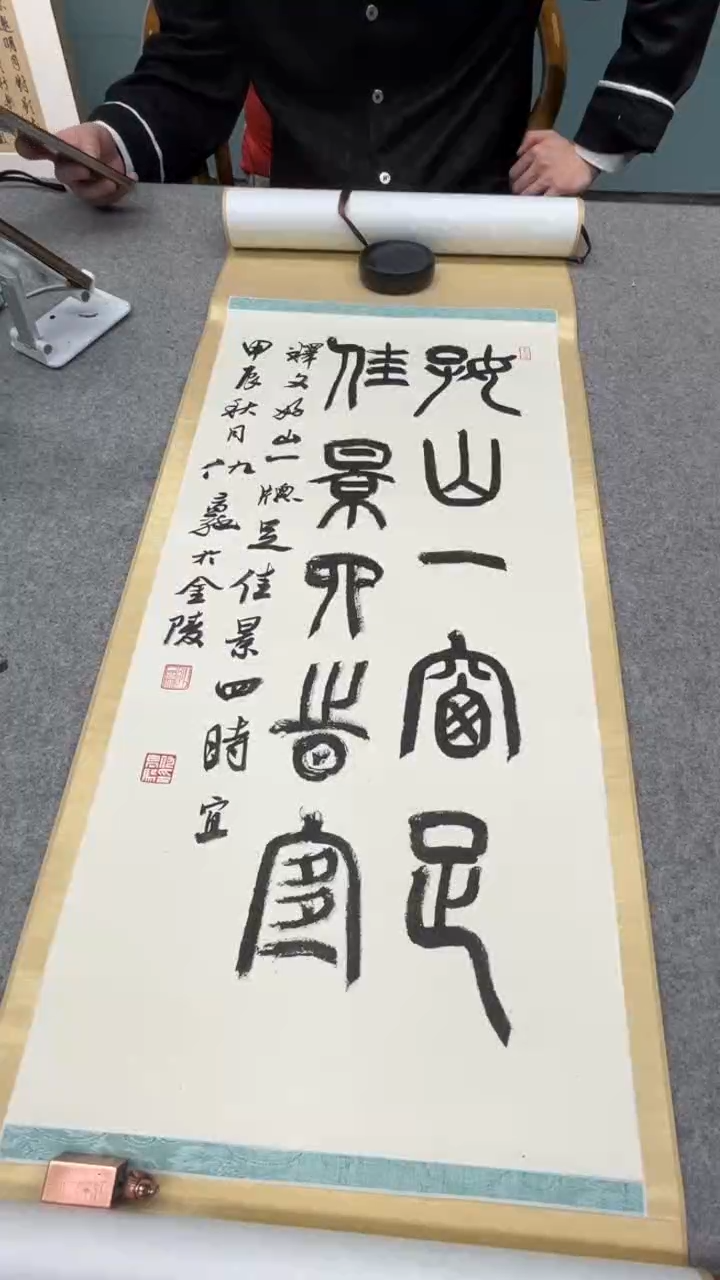 好山一窗足
佳景四時宜
釋文好山一牕足佳景四時宜
甲辰秋月仇於金陵